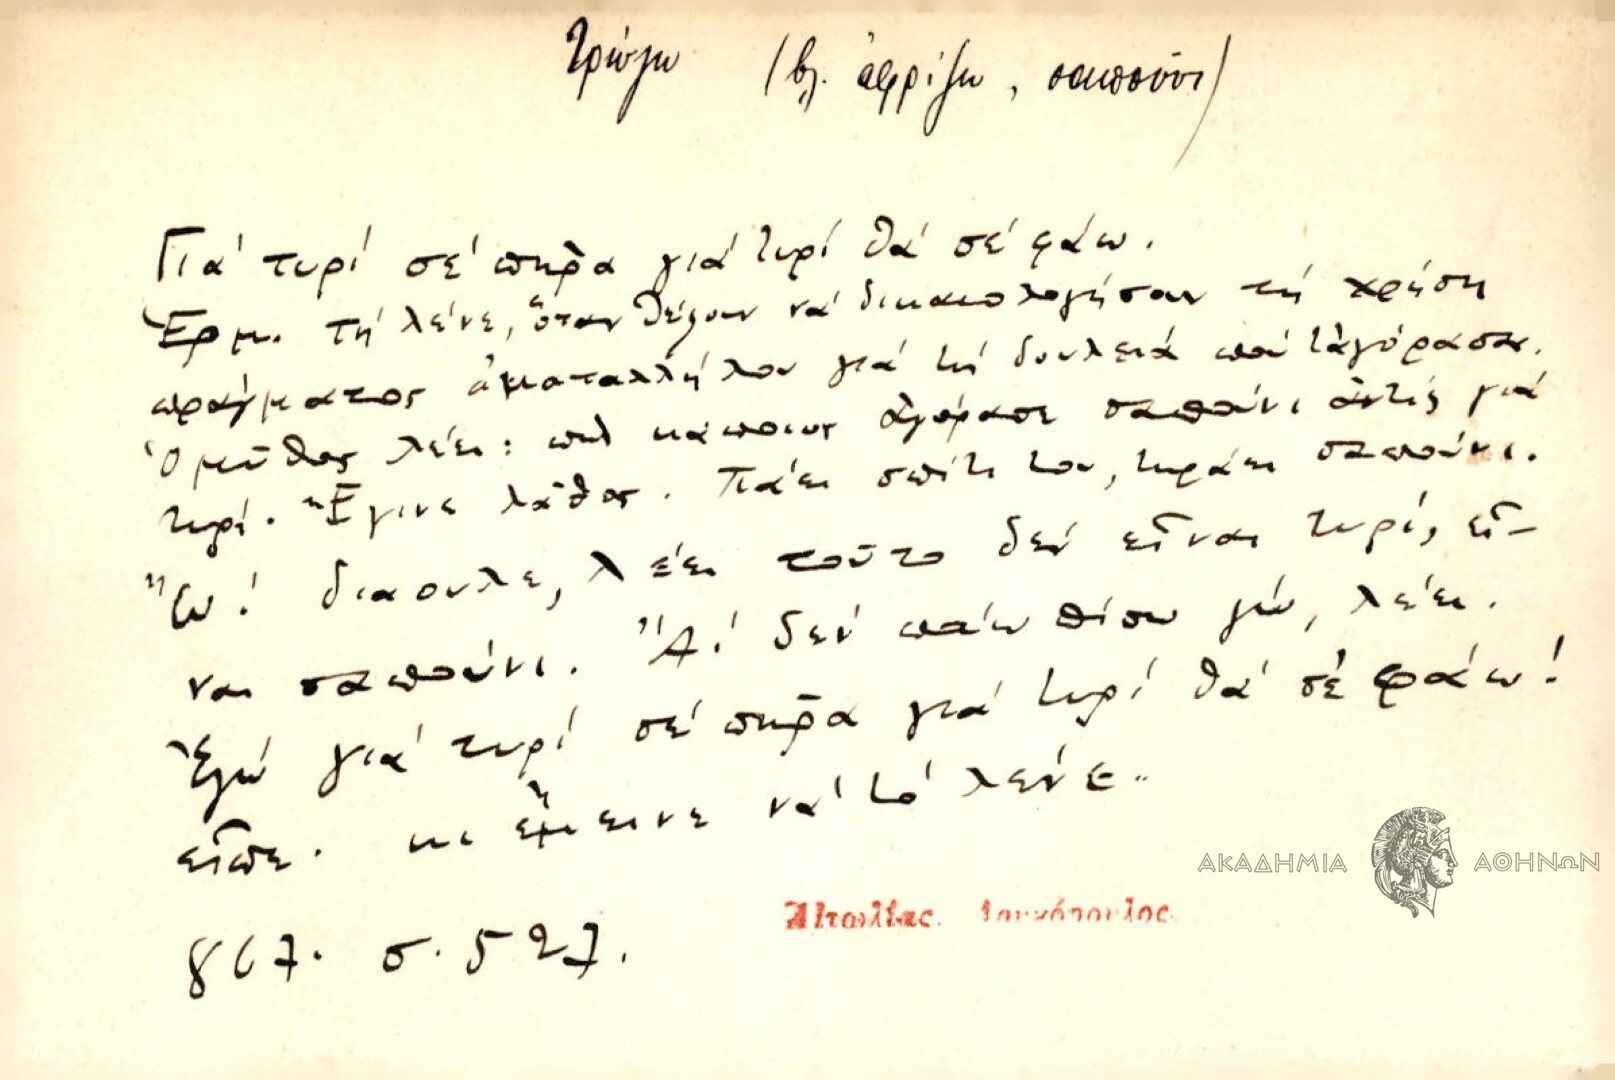 τρώγω (βλ. ἀφρίζω, σαπούνι)
Γιά τυρί σέ πῆρα γιά τυρί θά σέ φάω.
Ἑρμ. τή λένε, ὅταν θέλουν νά δικαιολογήσουν τή χρήση
πράγματος ἀκαταλλήλου γιά τή δουλειά πού τἀγόρασαν.
Ὁ μῦθος λέει: πώς κάποιος ἀγόρασε σαπούνι ἀντίς γιά
τυρί. Ἔγινε λάθος. Πάει σπίτι του, τηράει σαπούνι.
Ὤ! διαουλε, λέει τοῦτο δέν εἶναι τυρί, εἶ-
ναι σαπούνι. Ἄ! δέν πάω πίσω γώ, λέει.
Ἐγώ γιά τυρί σέ πῆρα γιά τυρί θά σέ φάω!
εἶπε. κι ἔμεινε νά τό λένε..
867. σ. 527.
Αἰτωλίας. Λουκόπουλος.
ΑΚΑΔΗΜΙΑ ΑΘΗΝΩΝ